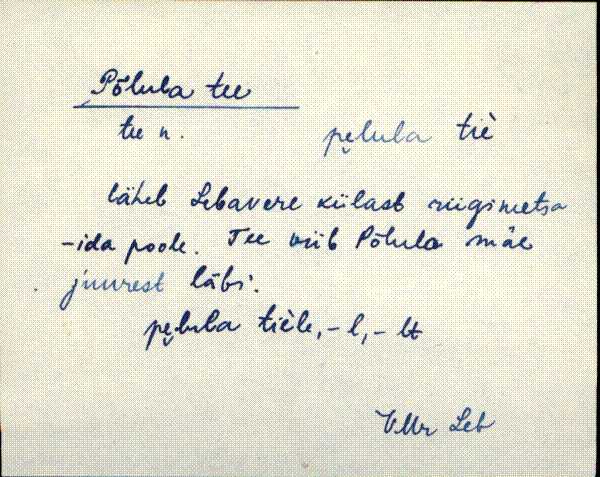 Põlula tee
tee n. pe̮lula tiè
läheb Lebavere külast riigimetsa
-ida poole. Tee viib Põlula mäe
juurest läbi.
pe̮lula tièle, -l, -lt
VMr Leb